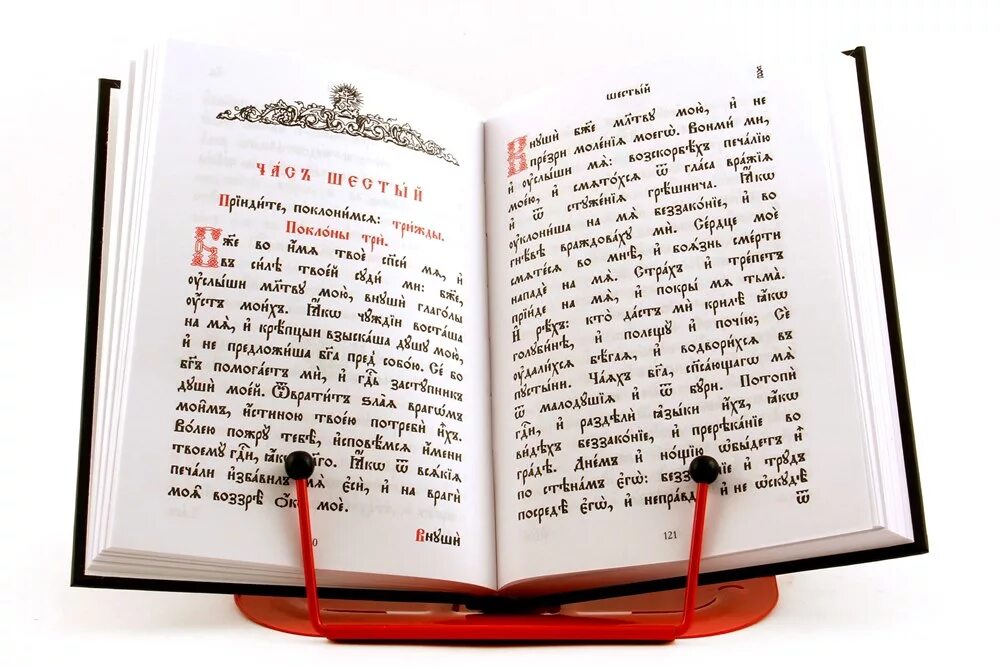 ЧА́СЪ ШЕСТЫ́Й
Прїиди́те, поклони́мсѧ: три́жды.
Покло́ны три̑.
Бж҃е во и҆́мѧ твоѐ сп҃си́ мѧ, и҆
въ си́лѣ твое́й сꙋди́ ми: бж҃е,
ᲂу҆слы́ши мл҃твꙋ мою̀, внꙋшѝ глаго́лы
ᲂу҆́стъ мои́хъ. Ꙗ҆́кѡ чꙋ́ждїи воста́ша
на мѧ̀, и҆ крѣ́пцыи взыска́ша дꙋ́шꙋ мою̀,
и҆ не предложи́ша бг҃а пред̾ собо́ю. Се́ бо
бг҃ъ помога́етъ мѝ, и҆ гд҇ь застꙋ́пникъ
дꙋшѝ мое́й. Ѿврати́тъ ѕла̑ѧ врагѡ́мъ
мои̑мъ, и҆́стиною твое́ю потребѝ и҆̀хъ.
Во́лею пожрꙋ̀ тебѣ̀, и҆сповѣ́мсѧ и҆́мени
твоемꙋ̀ гд҇и, ꙗ҆́кѡ Ꙗ҆́кѡ ѿ всѧ́кїѧ
печа́ли и҆зба́вилъ мѧ̀ є҆сѝ, и҆ на врагѝ
моѧ̑ воззрѣ̀ моѐ.
Внꙋшѝ
шесты́й
Внꙋшѝ бж҃е мл҃твꙋ мою̀, и҆ не
пре́зри моле́нїѧ моегѡ̀. Вонми́ ми,
и҆ ᲂу҆слы́ши мѧ̀: возскорбѣ́хъ печа́лїю
мое́ю, и҆ смѧто́хсѧ ѿ гла́са вра́жїѧ
и҆ ѿ стꙋже́нїѧ грѣ́шнича. Ꙗ҆́кѡ
ᲂу҆клони́ша на мѧ̀ беззако́нїе, и҆ во
гнѣ́вѣ враждова́хꙋ мѝ. Се́рдце моѐ
смѧте́сѧ во мнѣ̀, и҆ боѧ́знь сме́рти
нападѐ на мѧ̀. Стра́хъ и҆ тре́петъ
прїи́де на мѧ̀, и҆ покры́ мѧ тьма̀.
И҆ рѣ́хъ: кто̀ да́стъ ми́ крилѣ̀ ꙗ҆́кѡ
голꙋби́нѣ, и҆ полещꙋ̀ и҆ почі́ю; Се́
ᲂу҆дали́хсѧ бѣ́гаѧ, и҆ водвори́хсѧ въ
пꙋсты́ни. Ча́ѧхъ бг҃а, сп҃са́ющагѡ мѧ̀
ѿ малодꙋ́шїѧ и҆ ѿ бꙋ́ри. Потопѝ
гд҇и, и҆ раздѣлѝ ꙗ҆зы́ки и҆́хъ, ꙗ҆́кѡ
ви́дѣхъ беззако́нїе, и҆ пререка́нїе во
гра́дѣ. Дне́мъ и҆ но́щїю ѡ҆бы́детъ и҆̀
по стѣна́мъ є҆гѡ̀: беззако́нїе и҆ трꙋ́дъ
посредѣ̀ є҆гѡ̀, и҆ непра́вда: и҆ не ѡ҆скꙋдѣ̀
ѿ
121